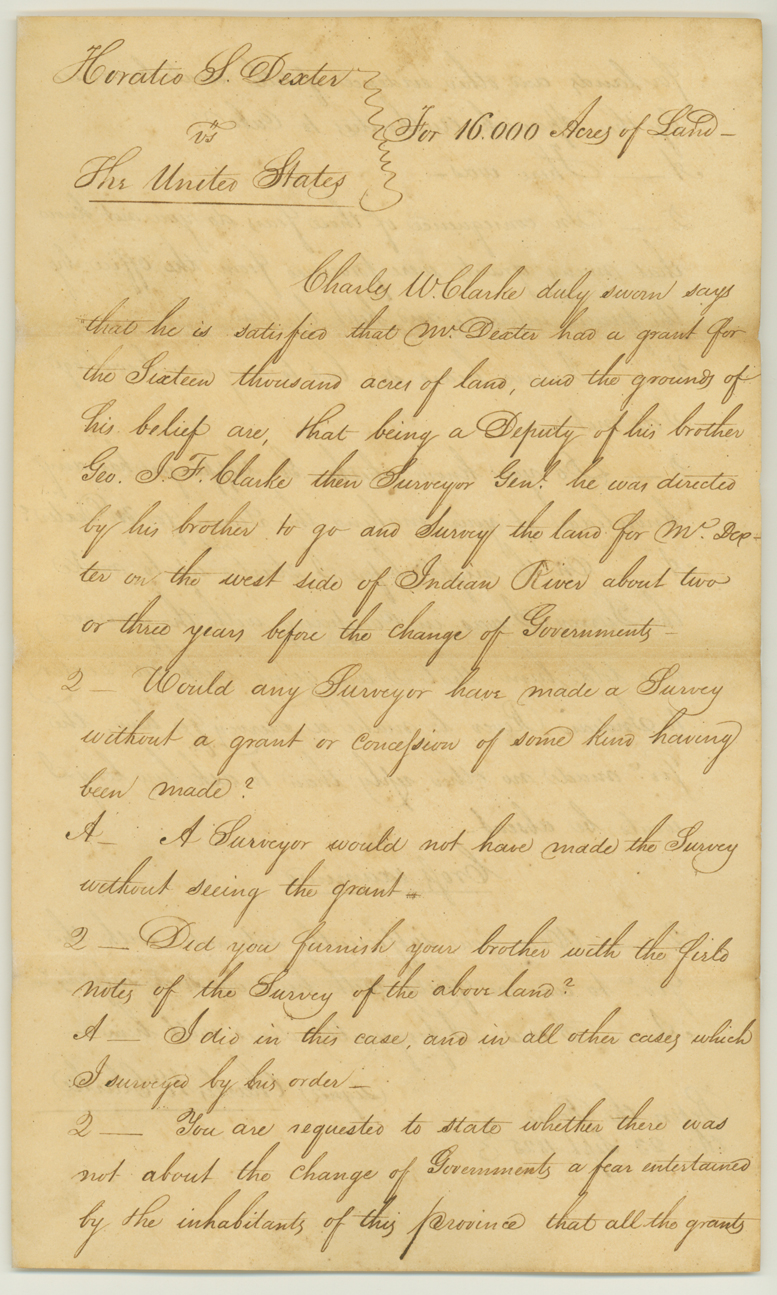 Horatio S. Dexter
vs
For 16.000 Acres of Land –
The United States
Charles W. Clarke duly sworn says
that he is satisfied that Mr. Dexter had a grant for
the Sixteen thousand acres of land, and the grounds of
his belief are, that being a Deputy of his brother
Geo. J. F. Clarke then Surveyor Genl. he was directed
by his brother to go and Survey the land for Mr. Dex-
ter on the west side of Indian River about two
or three years before the change of Governments –
2 – Would any Surveyor have made a Survey
without a grant or concession of some kind having
been made?
A – A Surveyor would not have made the Survey
without seeing the grant –
2 – Did you furnish your brother with the field
notes of the Survey of the above land?
A – I did in this case, and in all other cases which
I surveyed by his order –
2 – You are requested to state whether there was
not about the change of Governments a fear entertained
by the inhabitants of this province that all the grants